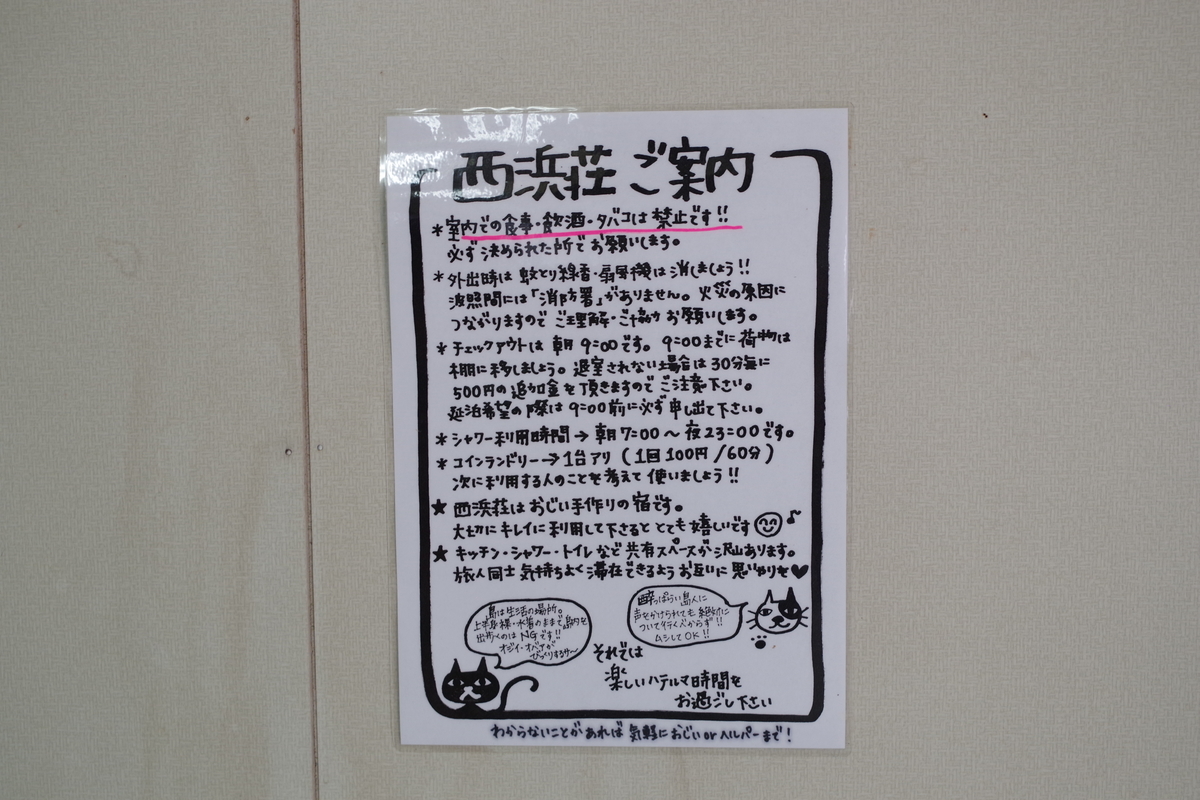 西浜荘 ご案内
＊室内での食事・飲酒・タバコは禁止です!!
必ず決められた所でお願いします。
＊外出時は蚊とり線香・扇風機は消しましょう!!
波照間には「消防署」がありません。火災の原因に
つながりますのでご理解・ご協力お願いします。
＊チェックアウトは朝9:00です。9:00までに荷物は
棚に移しましょう。退室されない場合は30分毎に
500円の追加金を頂きますのでご注意下さい。
延泊希望の際は9:00前に必ず申し出て下さい。
＊シャワー利用時間→朝7:00～夜23:00です。
＊コインランドリー→1台アリ（1回100円/60分）
次に利用する人のことを考えて使いましょう!!
★西浜荘はおじい手作りの宿です。
大切にキレイに利用して下さるととても嬉しいです♪
★キッチン・シャワー・トイレなど共有スペースが沢山あります。
旅人同士気持ちよく滞在できるようお互いに思いやりを♥
島は生活の場所。
上半身裸・水着のままで島内を
出歩くのはNGです!!
オジィ・オバァが
びっくりするサ〜
酔っぱらい島人に
声をかけられても絶対に
ついて行くべからず!!
ムシしてOK!!
それでは
楽しいハテルマ時間を
お過ごし下さい
わからないことがあれば気軽におじいorヘルパーまで!